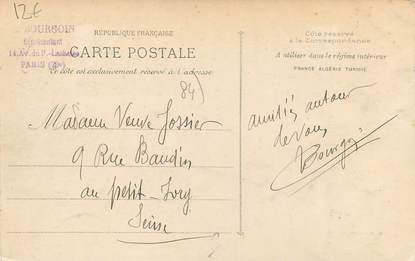 12€
BOURGOIN
PARIS
RÉPUBLIQUE FRANÇAISE
CARTE POSTALE
Ce côté est exclusivement réservé à l'adresse
Côté réservé
à la Correspondance
A utiliser dans le régime intérieur
FRANCE ALGÉRIE TUNISIE
84)
Madame Veuve Jossier
9 Rue Baudin
au petit-Ivry
Seine
amitiés autour
de vous
Bourgoin